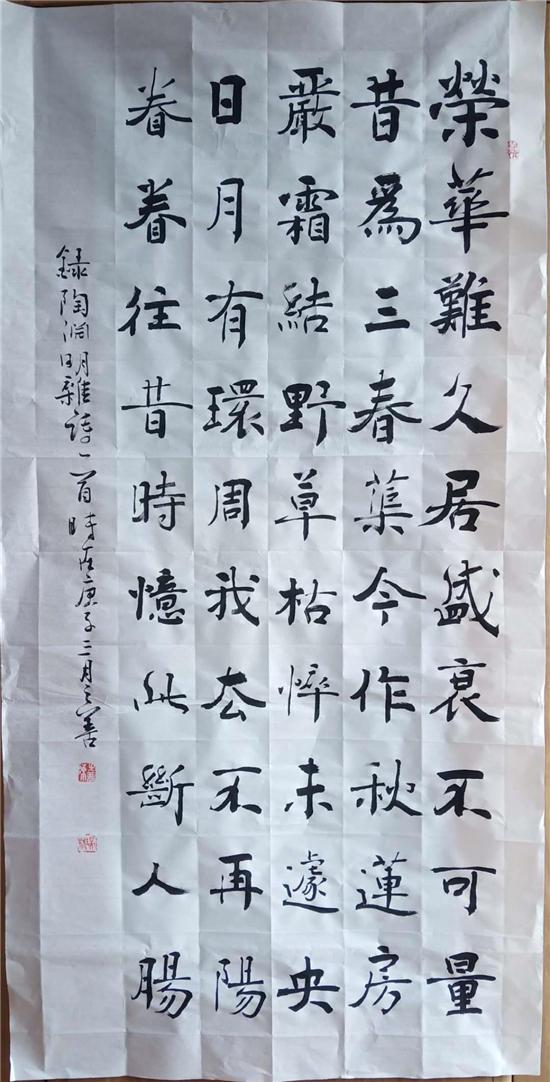 榮華難久居盛衰不可量
昔爲三春蕖今作秋蓮房
嚴霜結野草枯悴未遽央
日月有環周我去不再陽
眷眷往昔時憶此斷人腸
録陶渊明雜詩一首時在庚子三月之善